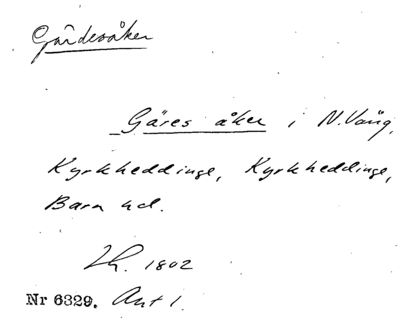 Gärdesåker
Gäres åker i N. Vång,
Kyrkheddinge, Kyrkheddinge,
Bara hd.
1802
Nr 6329. Akt 1.